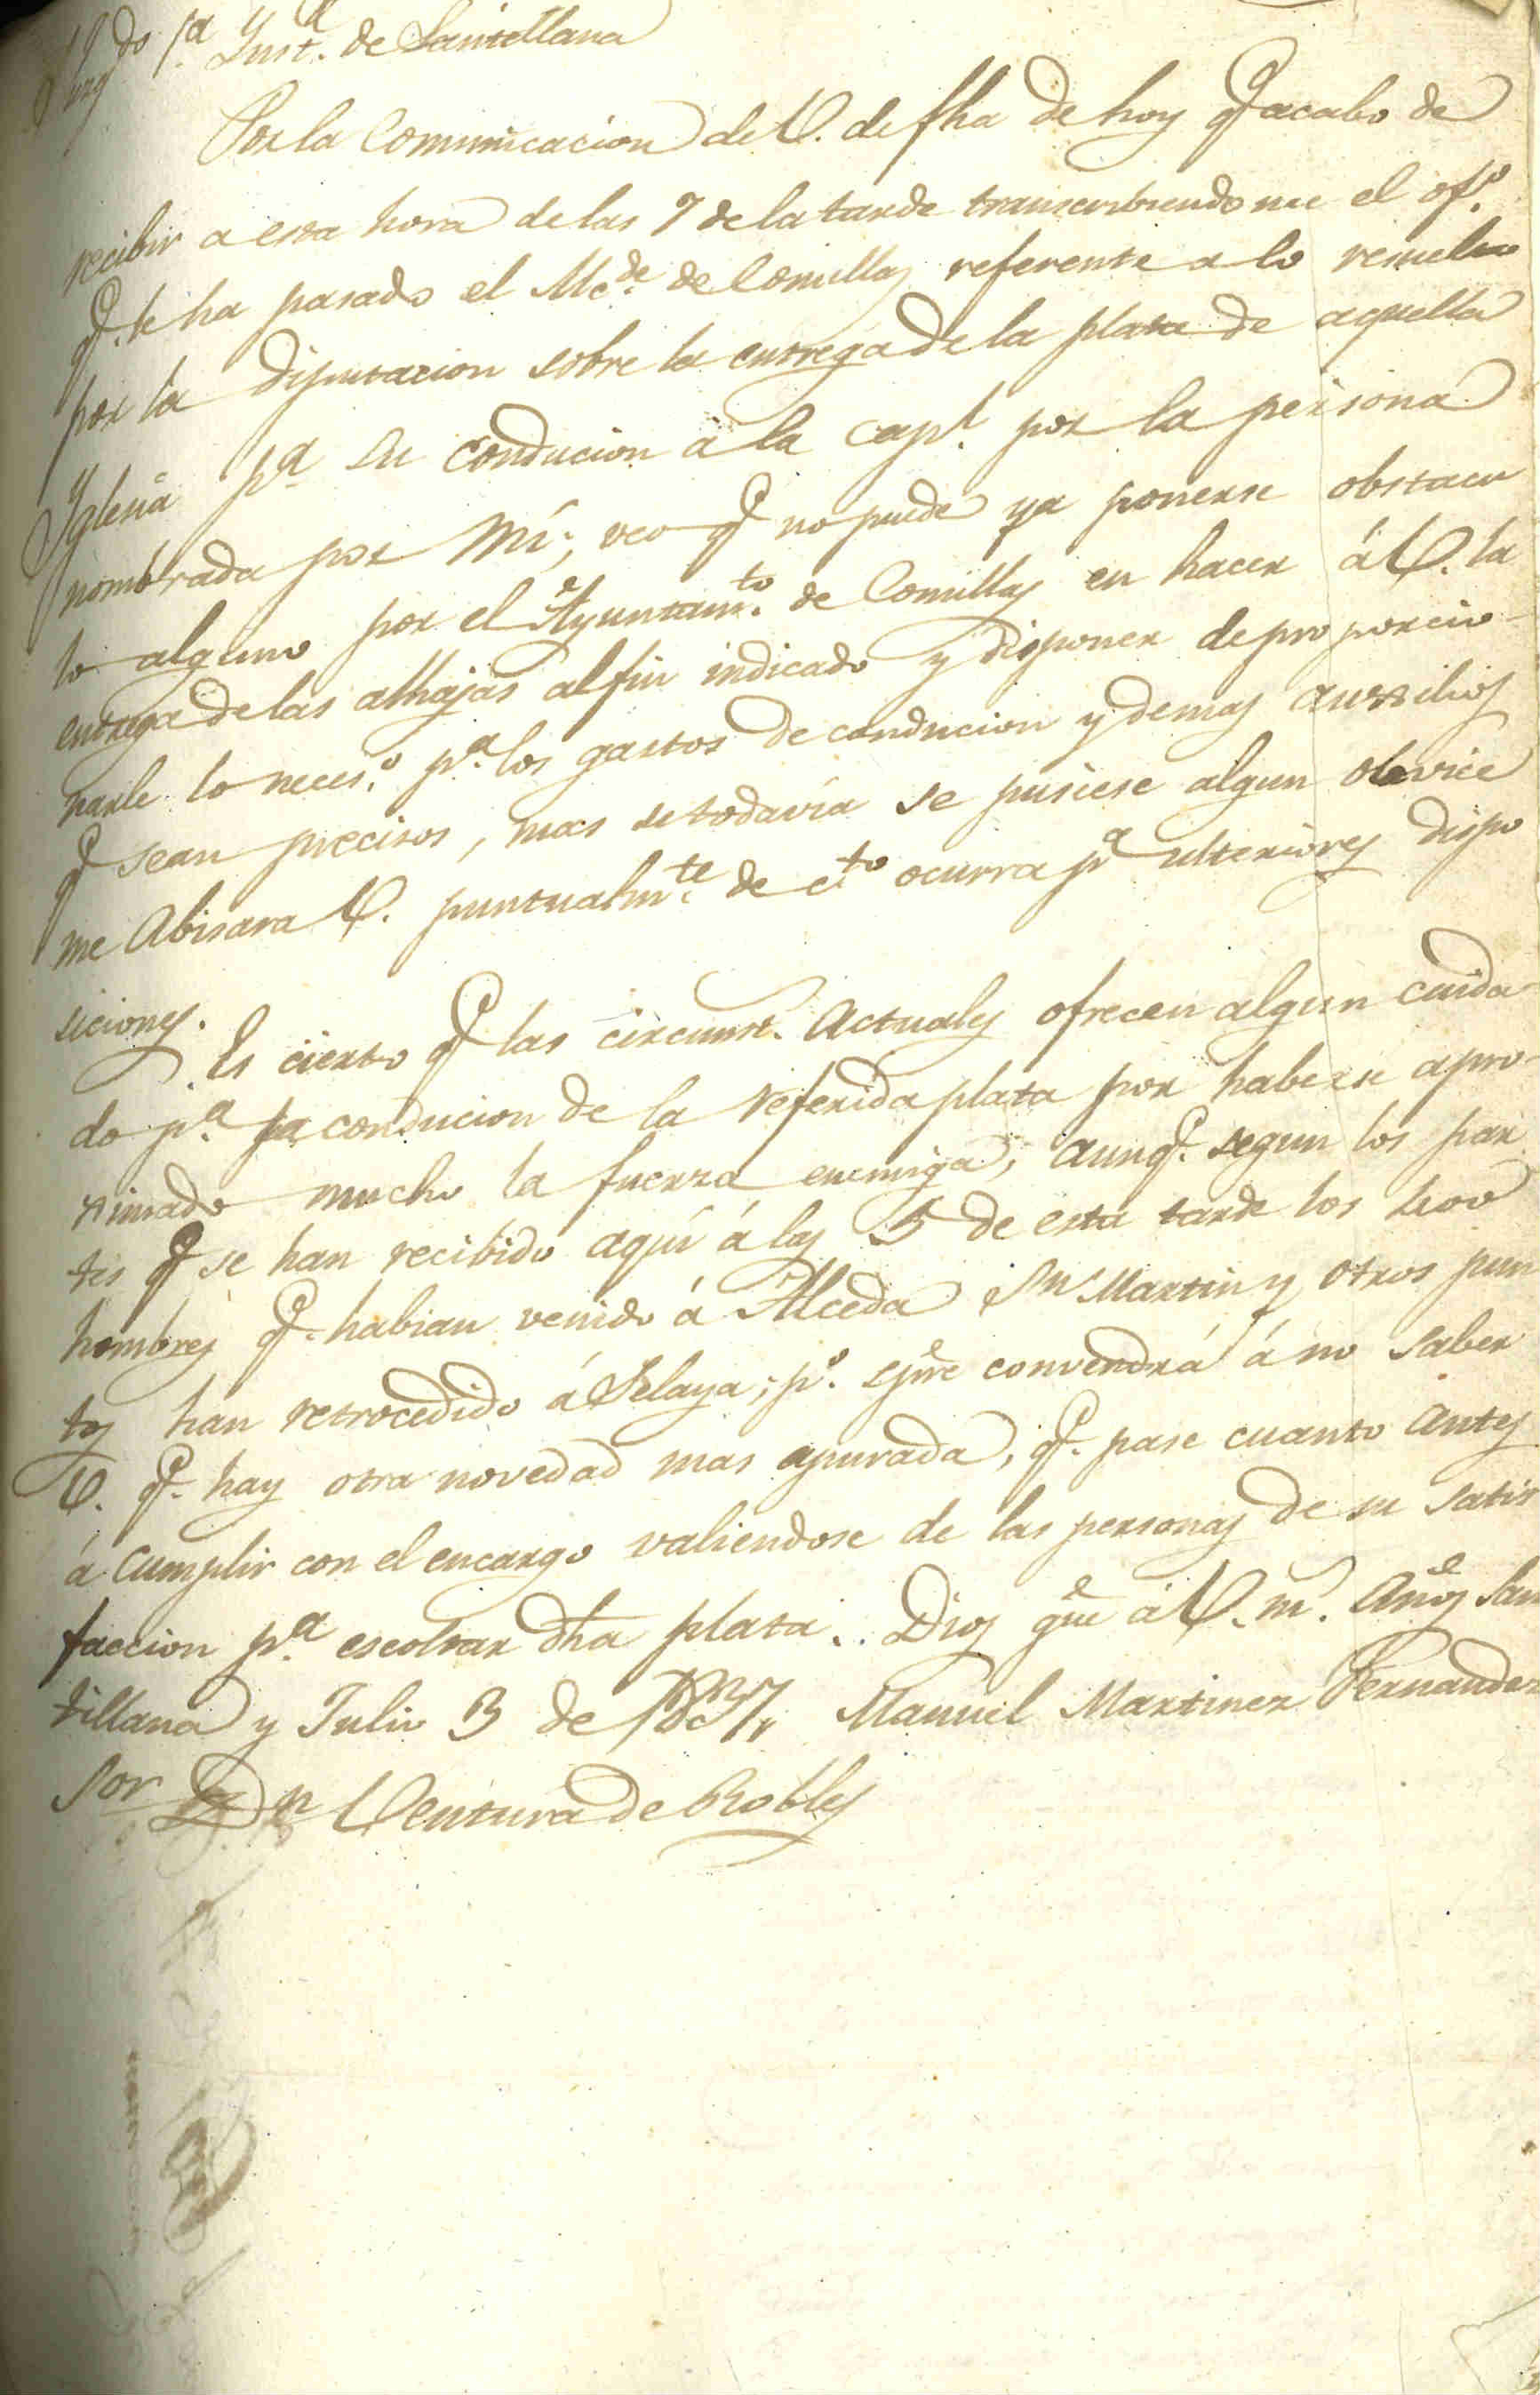 Juzgdo 1a Ynsta. de Santillana
Por la Comunicacion de V. de fha de hoy q acabo de
recibir a esta hora de las 7 de la tarde transcribiendome el ofo.
q. le ha pasado el Alcde. de Comillas referente a lo resuelto
por la Diputacion sobre la entrega de la plata de aquella
Yglesia pa su conducion a la capl. por la persona
nombrada por Mí; veo q no puede ya ponerse obstacu
lo alguno por el Ayuntamto. de Comillas en hacer á V. la
entrega de las alhajas al fin indicado y disponer de proporcio-
narle lo neceso. pa. los gastos de conducion y demas auxilios
q sean precisos, mas si todavía se pusiese algun obvice
me Abisara V. puntualmte. de cto. ocurra pa ulteriores dispo
siciones.
Es cierto q las circunst. Actuales ofrecen algun cuida-
do pa. la conducion de la referida plata por haberse apro-
ximado mucho la fuerza enemiga, aunq. segun los par
tes q se han recibido aquí á las 5 de esta tarde los
hombres q. habian venido á Alceda Sn Martin y otros pun
tos han retrocedido á Selaya; po. spre convendrá á no saber
V. q. hay otra novedad mas apurada, q. pase cuanto Antes
á cumplir con el encargo valiendose de las personas de su satis
faccion pa. escoltar dha plata. Dios gue á V. ms. Años San
tillana y Julio 3 de 1837, Manuel Martinez Fernandez
Sor Dn Ventura de Robles